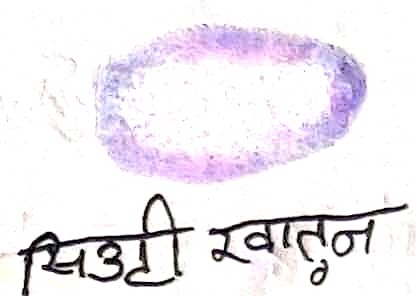 सिउटी खातून